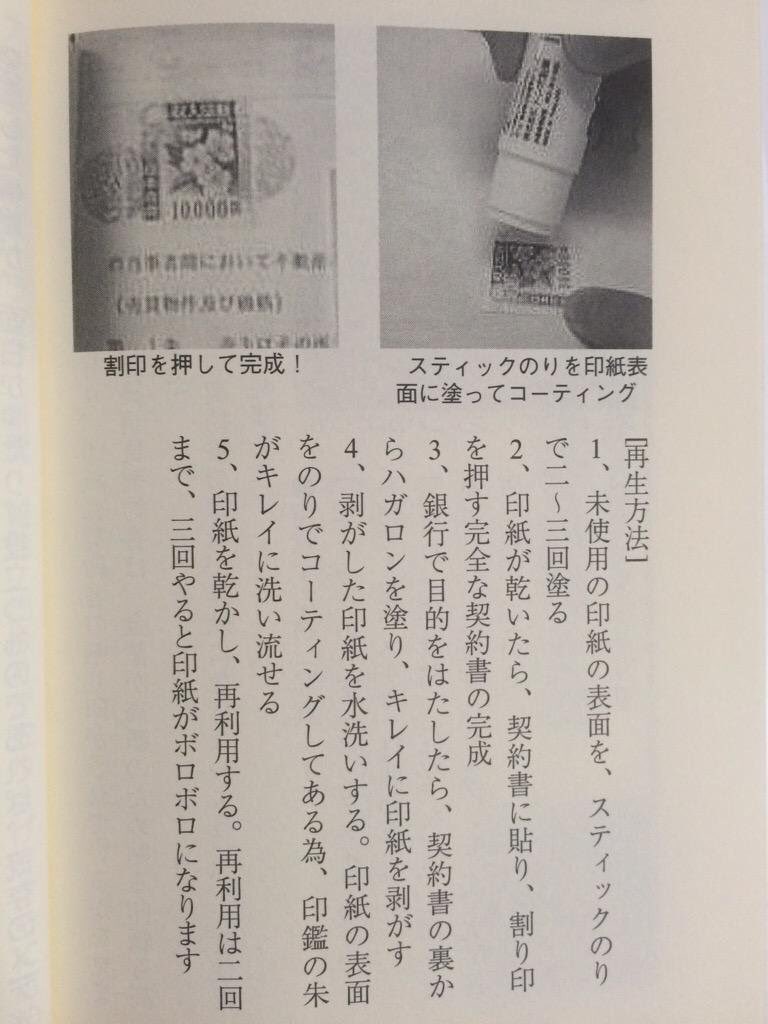 10,000
(売買物件及び価格)
割印を押して完成！
スティックのりを印紙表
面に塗ってコーティング
[再生方法]
1、未使用の印紙の表面を、スティックのり
で二〜三回塗る
2、印紙が乾いたら、契約書に貼り、割り印
を押す完全な契約書の完成
3、銀行で目的をはたしたら、契約書の裏か
らハガロンを塗り、キレイに印紙を剥がす
4、剥がした印紙を水洗いする。印紙の表面
をのりでコーティングしてある為、印鑑の朱
がキレイに洗い流せる
5、印紙を乾かし、再利用する。再利用は二回
まで、三回やると印紙がボロボロになります